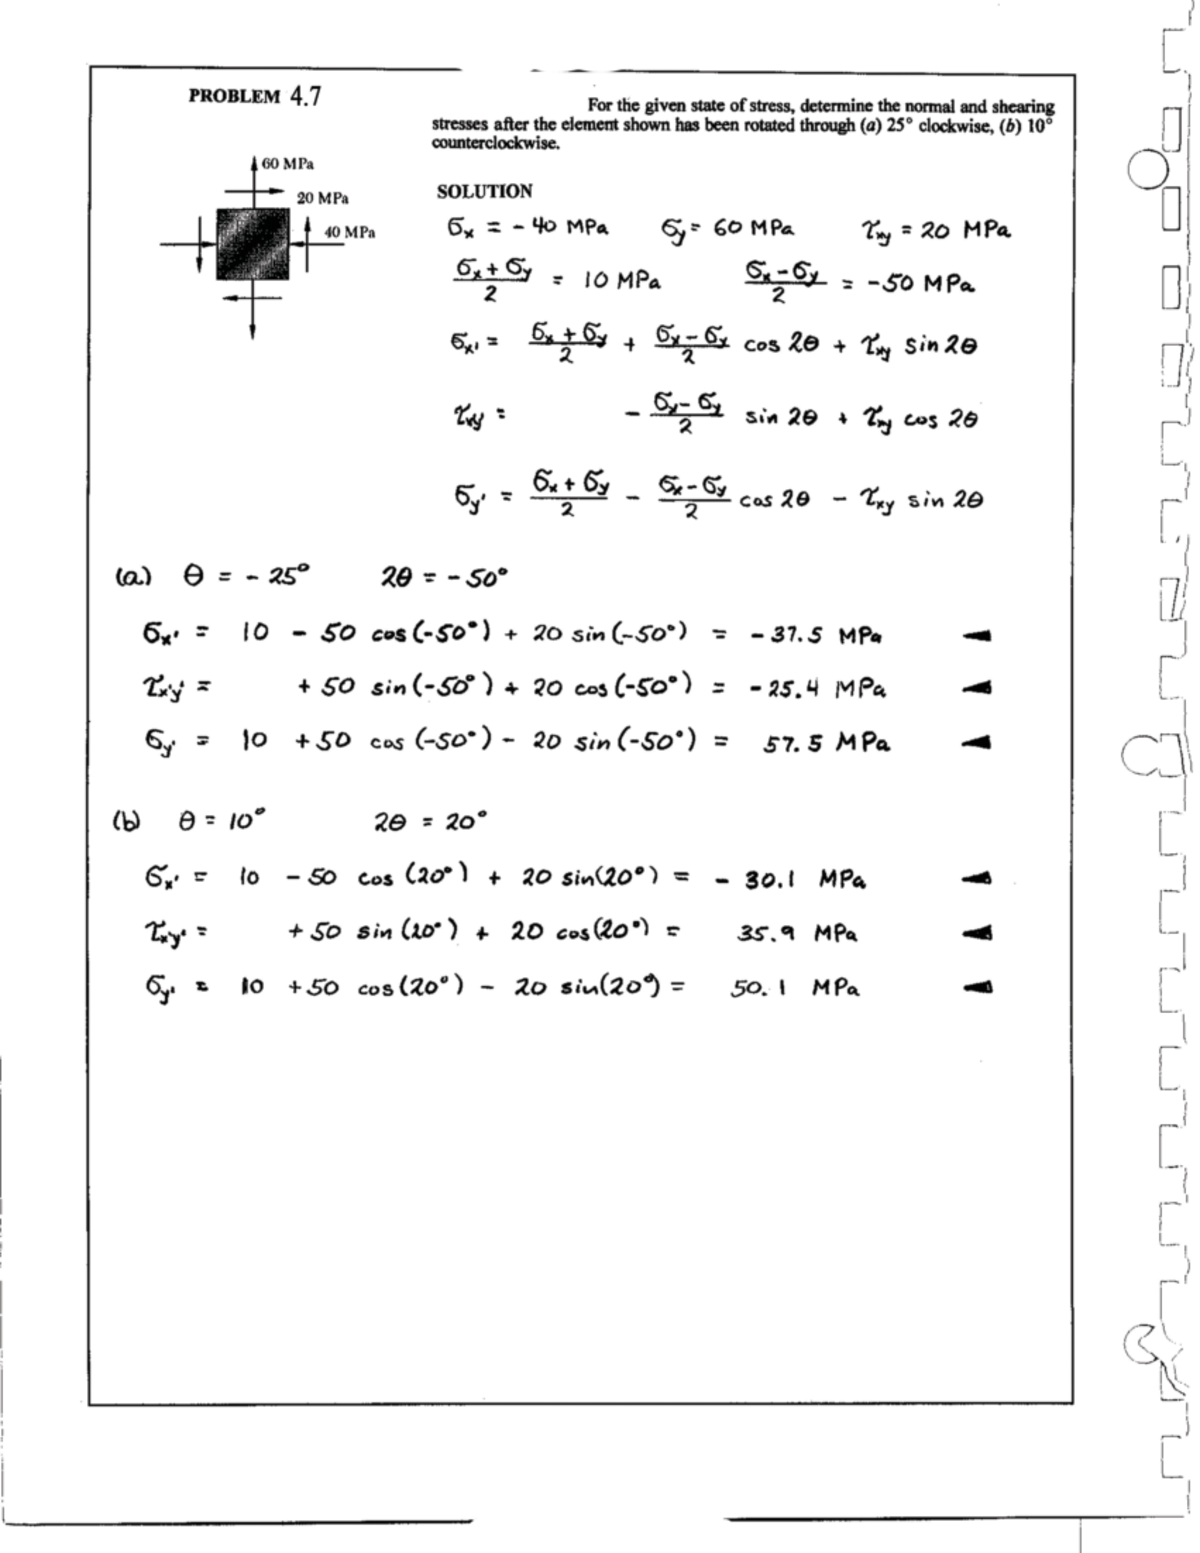 PROBLEM 4.7
For the given state of stress, determine the normal and shearing
stresses after the element shown has been rotated through (a) 25° clockwise, (b) 10°
counterclockwise.
60 MPa
20 MPa
40 MPa
SOLUTION
σx = - 40 MPa σy = 60 MPa τxy = 20 MPa
(σx + σy)/2 = 10 MPa (σx - σy)/2 = -50 MPa
σx' = (σx + σy)/2 + (σx - σy)/2 cos 2θ + τxy sin 2θ
τxy = - (σx - σy)/2 sin 2θ + τxy cos 2θ
σy' = (σx + σy)/2 - (σx - σy)/2 cos 2θ - τxy sin 2θ
(a) θ = - 25° 2θ = - 50°
σx' = 10 - 50 cos (-50°) + 20 sin (-50°) = - 37.5 MPa
τx'y' = + 50 sin (-50°) + 20 cos (-50°) = - 25.4 MPa
σy' = 10 + 50 cos (-50°) - 20 sin (-50°) = 57.5 MPa
(b) θ = 10° 2θ = 20°
σx' = 10 - 50 cos (20°) + 20 sin(20°) = - 30.1 MPa
τx'y' = + 50 sin (20°) + 20 cos(20°) = 35.9 MPa
σy' = 10 + 50 cos (20°) - 20 sin(20°) = 50.1 MPa